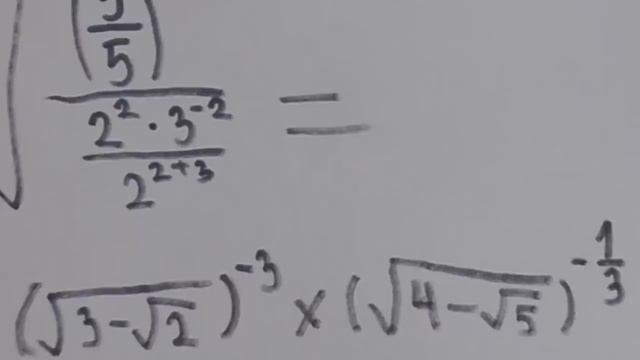 √((/5) / ((2² · 3⁻²) / 2²⁺³)) =
(√(3-√2))⁻³ × (√(4-√5))^(-1/3)